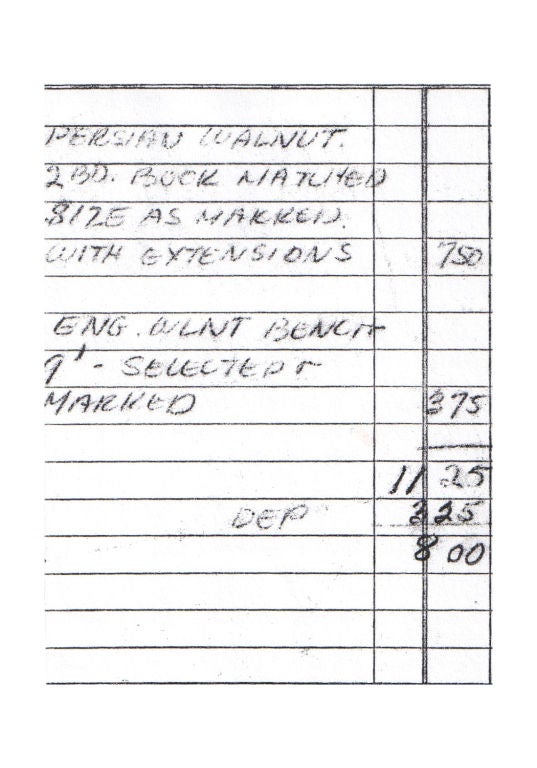 PERSIAN WALNUT.
2 BD. BOOK MATCHED
SIZE AS MARKED.
WITH EXTENSIONS 750
ENG. WLNT BENCH
9' - SELECTED +
MARKED 375
11 25
DEP 325
8 00